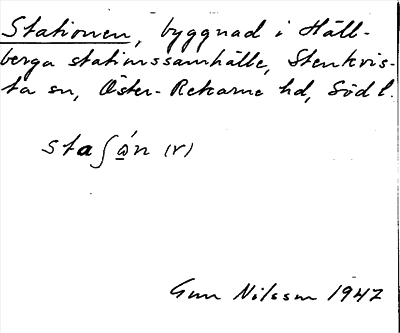 Stationen, byggnad i Häll-
berga stationssamhälle, Stenkvis-
ta sn, Öster-Rekarne hd, Södl.
staʃώ̲n (r)
Gun Nilsson 1947